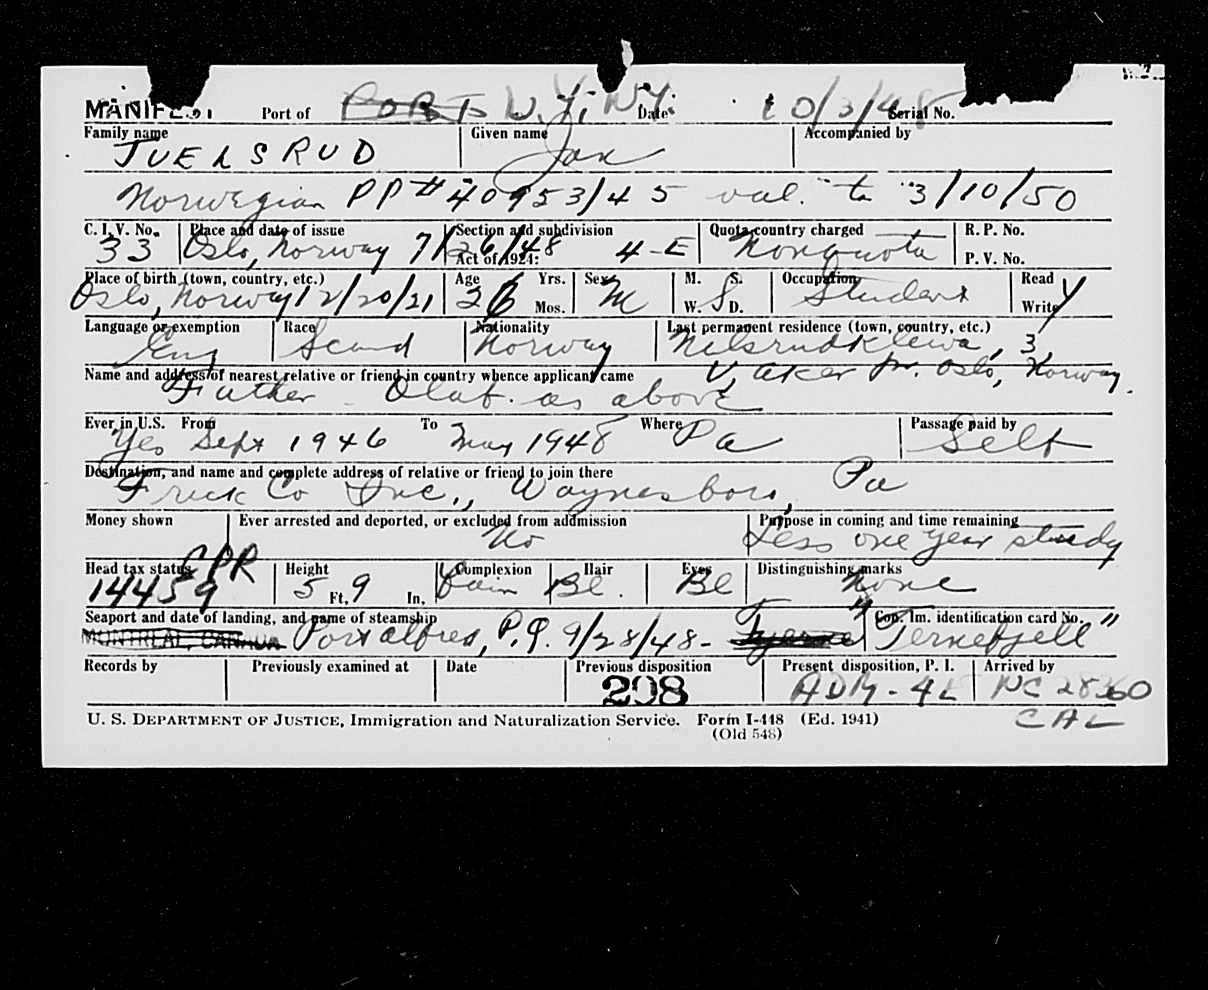 MANIFEST Port of N.Y. N.Y. Date 10/3/48 Serial No.
Family name Given name Accompanied by
JUELSRUD Jan
Norwegian PP# 40953/45 val. to 3/10/50
C. I. V. No. Place and date of issue Section and subdivision Quota country charged R. P. No.
33 Oslo, Norway 7/26/48 Act of 1924: 4-E Nonquota P. V. No.
Place of birth (town, country, etc.) Age Yrs. Sex M. S. Occupation Read
Oslo, Norway 12/20/21 26 Mos. M W. S D. Student Write Y
Language or exemption Race Nationality Last permanent residence (town, country, etc.)
Eng Scand Norway 3,
Name and address of nearest relative or friend in country whence applicant came V, Aker Pr. Oslo, Norway.
Father - Olaf. as above
Ever in U.S. From To Where Passage paid by
Yes Sept 1946 May 1948 Pa Self
Destination, and name and complete address of relative or friend to join there
Frick Co Inc., Waynesboro, Pa
Money shown Ever arrested and deported, or excluded from admission Purpose in coming and time remaining
No Less one year study
Head tax status CPR Height Complexion Hair Eyes Distinguishing marks
14459 5 Ft. 9 In. Fair Bl. Bl None
Seaport and date of landing, and name of steamship Con. Im. identification card No.
MONTREAL, CANADA Port Alfred, P.Q. 9/28/48- "Ternefjell"
Records by Previously examined at Date Previous disposition Present disposition, P. I. Arrived by
208 ADM-4E NC 28360
U. S. DEPARTMENT OF JUSTICE, Immigration and Naturalization Service. Form I-448 (Ed. 1941) CAL
(Old 548)